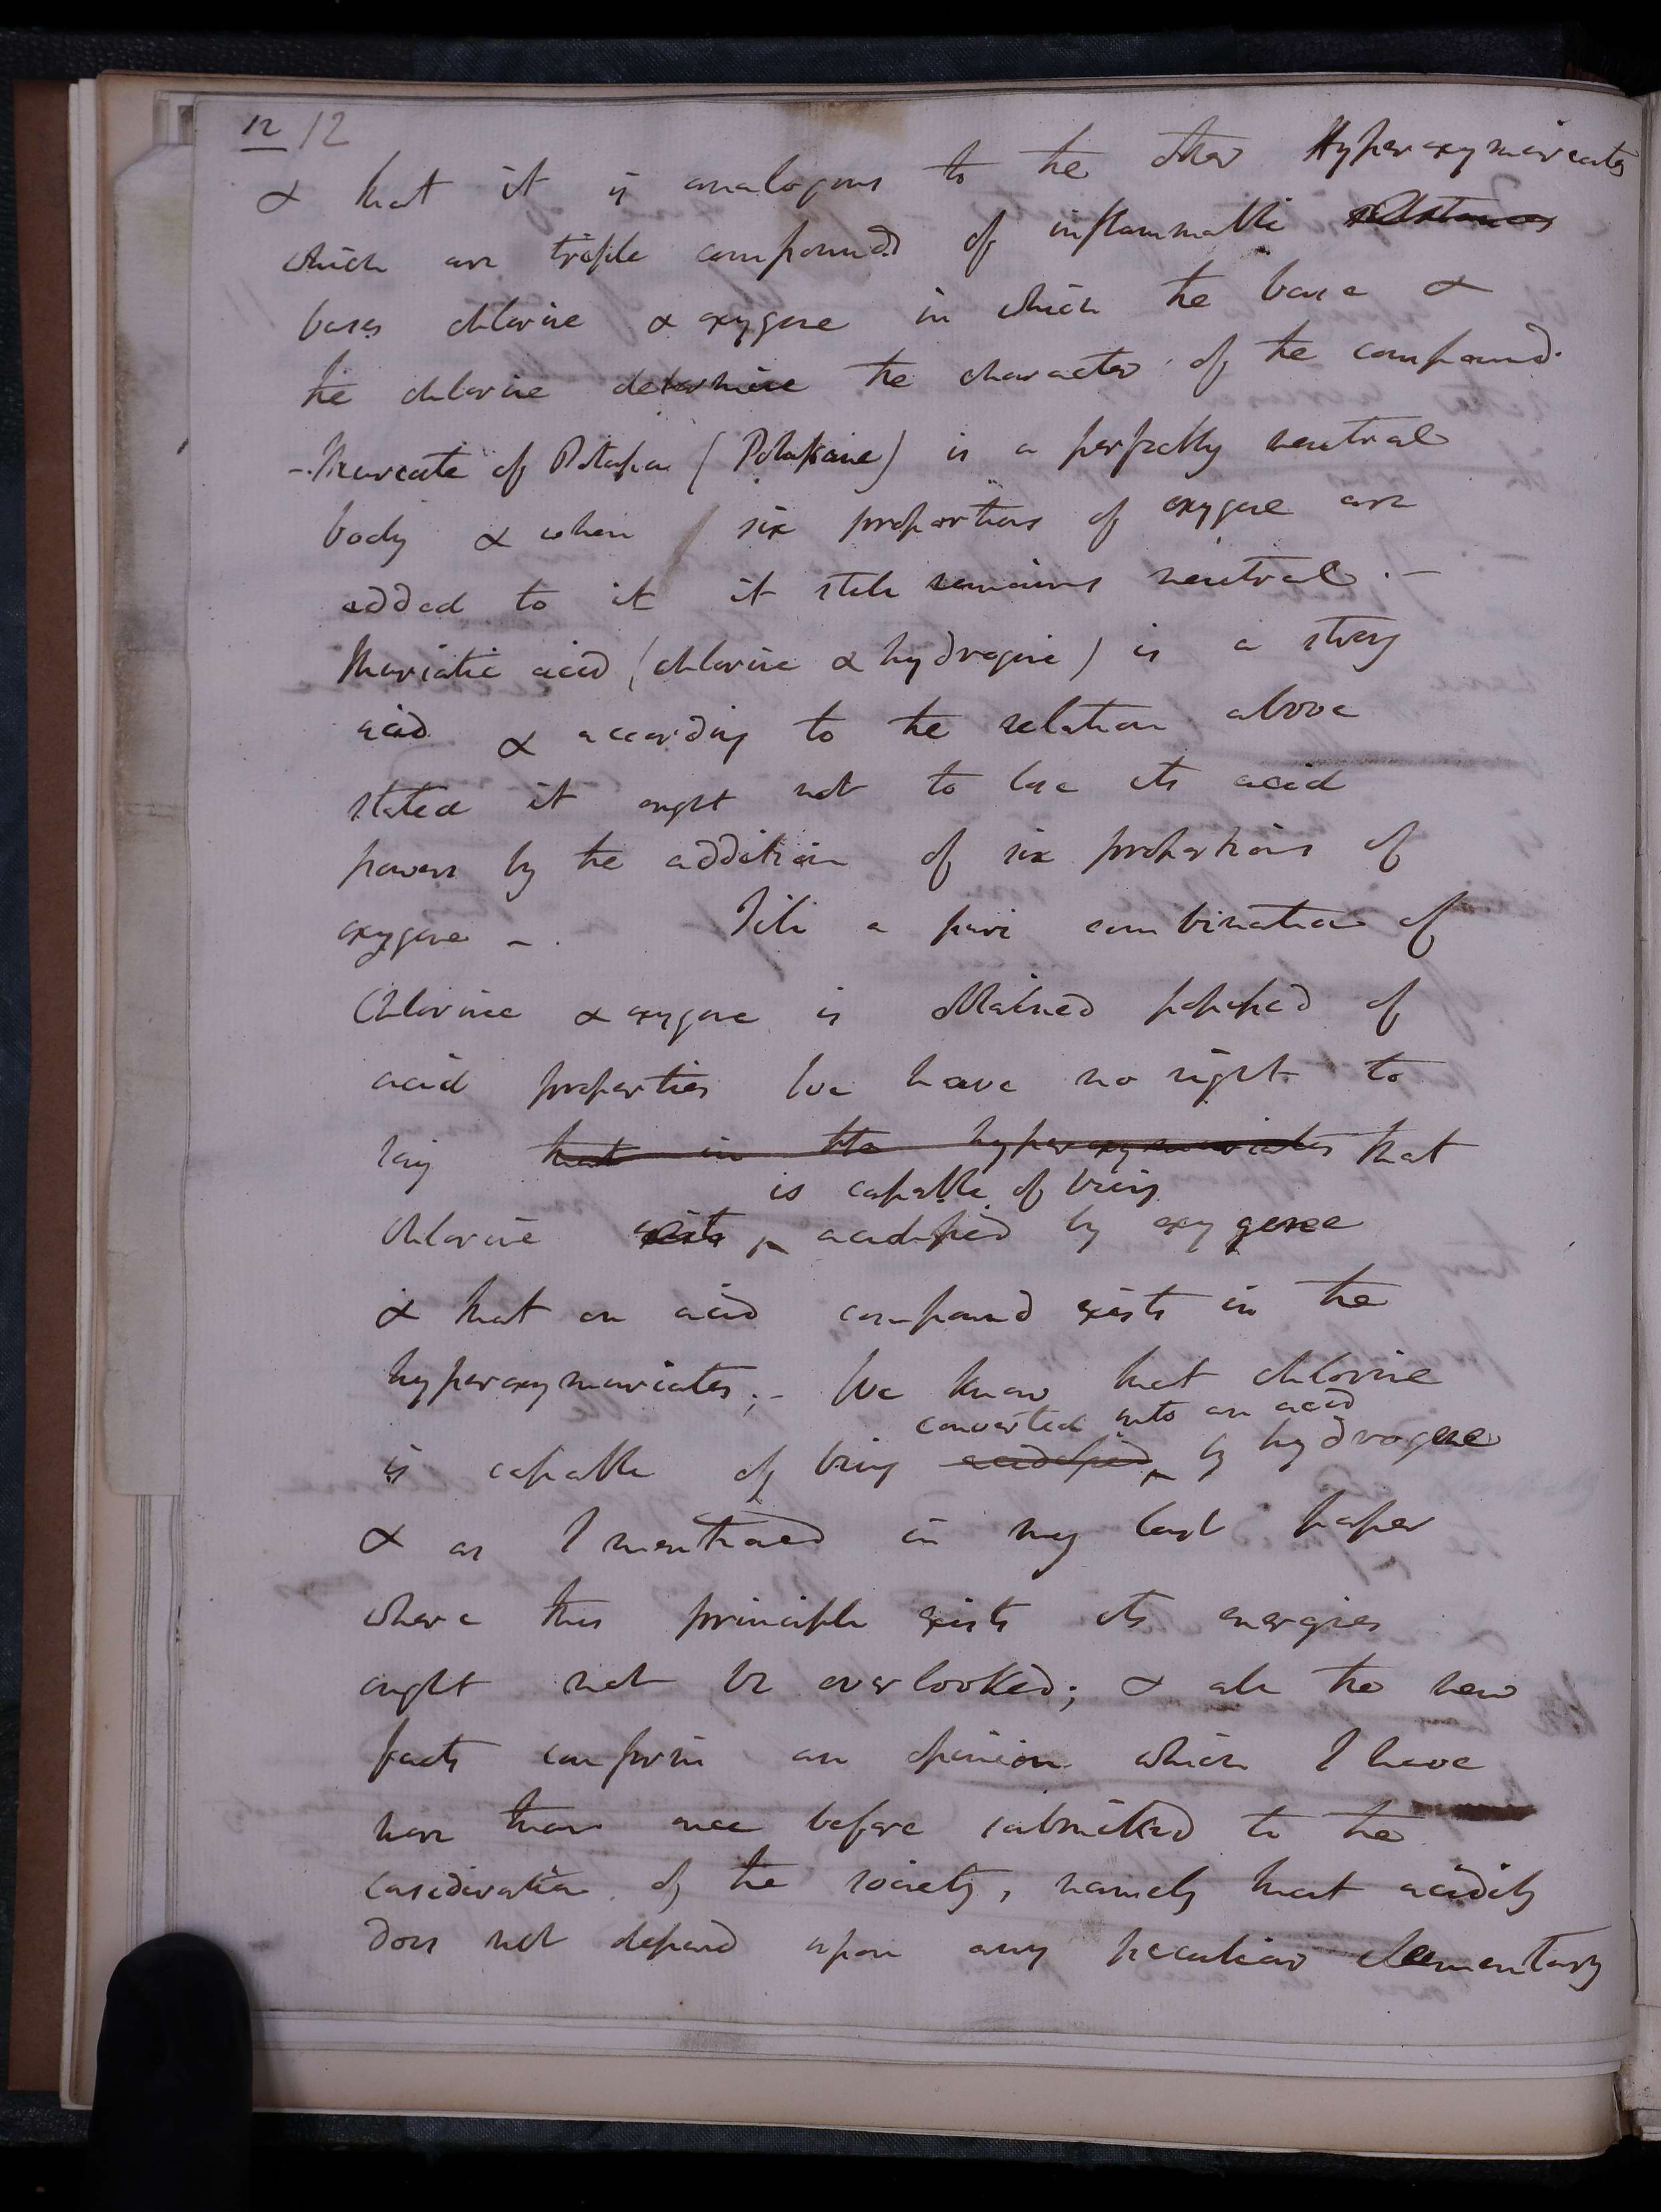 12 12
& that it is analogous to the other Hyperoxymuriates
which are triple compounds of inflammable substances
bases chlorine & oxygene in which the base &
the chlorine determine the character of the compound.
- Muriate of Potassa (Potassane) is a perfectly neutral
body & when six proportions of oxygene are
added to it it still remains neutral. -
Muriatic acid (chlorine & hydrogene) is a strong
acid & according to the relation above
stated it ought not to lose its acid
powers by the addition of six proportions of
oxygene -. Till a pure combination of
Chlorine & oxygene is obtained possessed of
acid properties we have no right to
say that in the hyperoxymuriates that
is capable of being
Chlorine exists ^ acidified by oxygene
& that an acid compound exists in the
hyperoxymuriates; - We know that chlorine
converted into an acid
is capable of being acidified ^ by hydrogene
& as I mentioned in my last paper
where this principle exists its energies
ought not be overlooked; & all the new
facts confirm an opinion which I have
more than once before submitted to the
consideration of the society, namely that acidity
does not depend upon any peculiar elementary